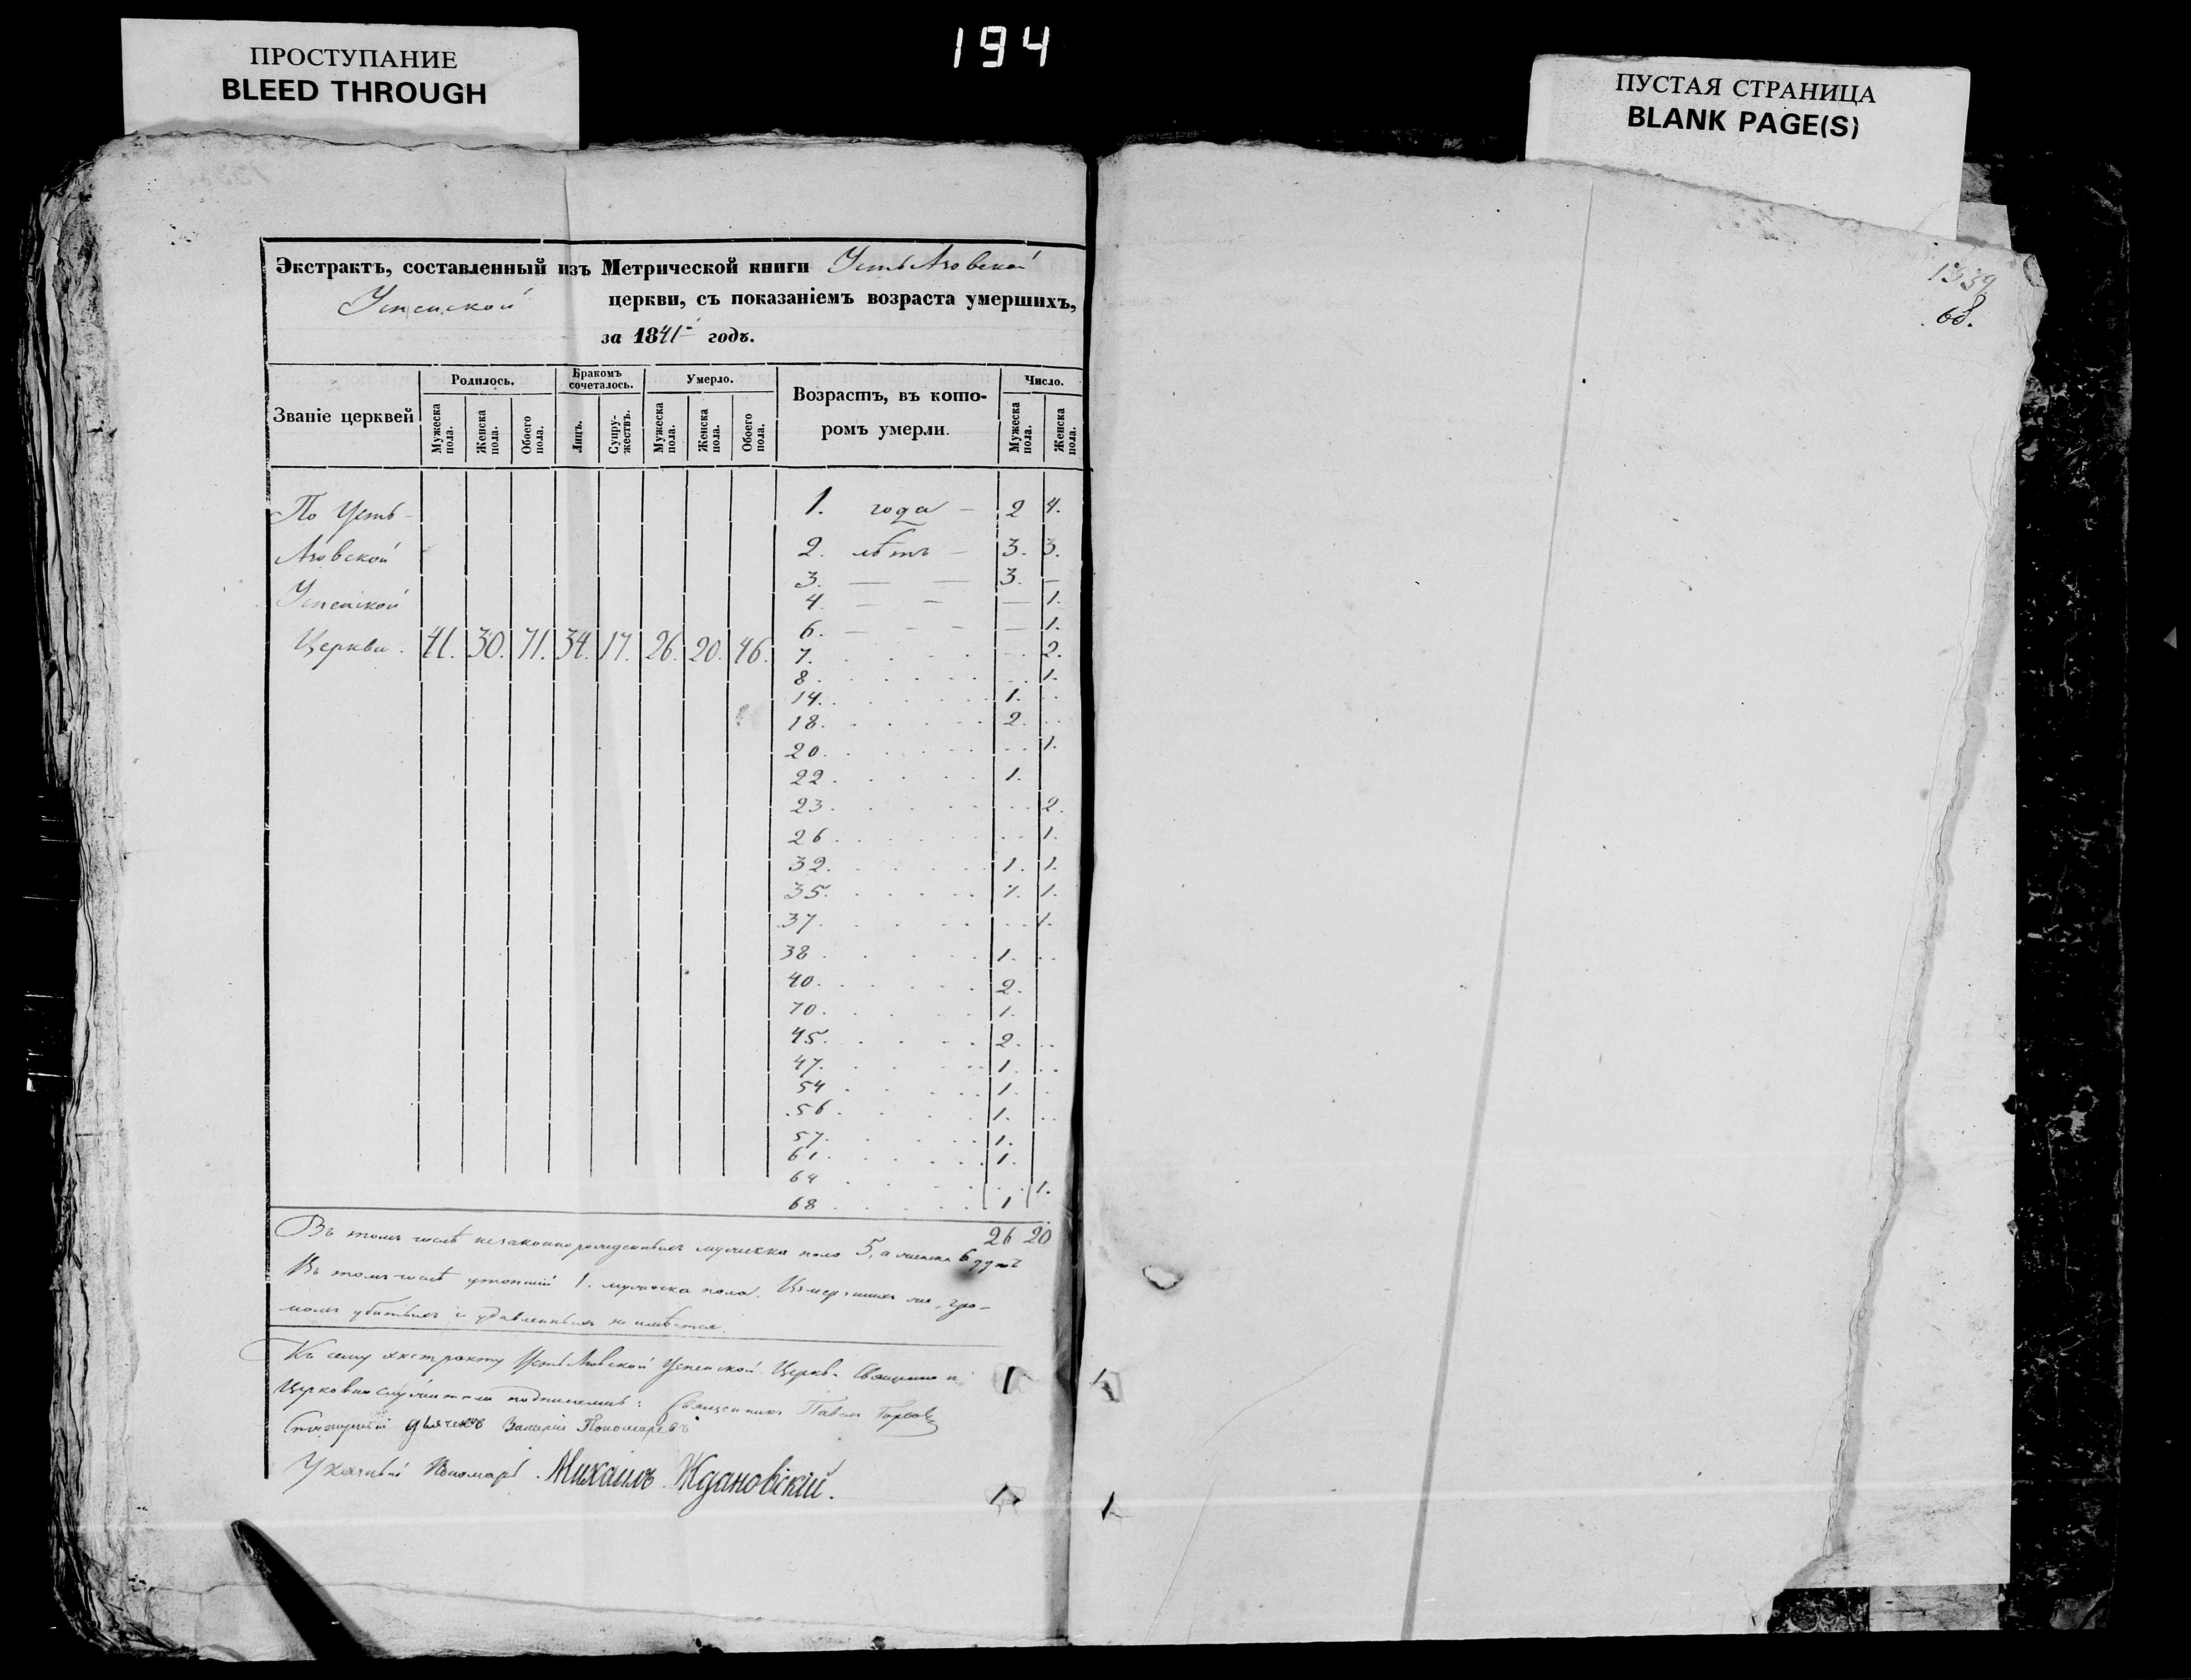 194
ПРОСТУПАНИЕ
BLEED THROUGH
ПУСТАЯ СТРАНИЦА
BLANK PAGE(S)
Экстрактъ, составленный изъ Метрической книги Усть Аговской
Успенской церкви, съ показаніемъ возраста умершихъ,
за 1841 годъ.
Званіе церквей
Родилось.
Бракомъ сочеталось.
Умерло.
Возрастъ, въ которомъ умерли.
Число.
Мужеска пола.
Женска пола.
Обоего пола.
Лицъ.
Супружествъ.
Мужеска пола.
Женска пола.
Обоего пола.
Мужеска пола.
Женска пола.
По Усть-
Аговской
Успенской
Церкви. 41. 30. 71. 34. 17. 26. 20. 46.
1. года — 2 4.
2. лѣтъ — 3. 3.
3. — — 3. —
4. — — — 1.
6. — — — 1.
7. 2.
8. 1.
14. 1.
18. 2.
20. 1.
22. 1.
23. 2.
26. 1.
32. 1. 1.
35. 1. 1.
37. 1.
38. 1.
40. 2.
70. 1.
45. 2.
47. 1.
54 1.
56. 1.
57. 1.
61. 1.
64 1.
68 1
26 20
Въ томъ числѣ незаконнорожденныхъ мужеска пола 5, а женска 6
Въ томъ числѣ утопшій 1. мужеска пола. гро-
момъ убитыхъ и удавленныхъ не имѣется.
Къ сему экстракту Усть Аговской Успенской Церкви Священно и
Церковнослужители подписались: Священникъ Павелъ
дьячекъ Пономаревъ
Указный Пономарь Михаилъ Ждановскій.
1539
68.